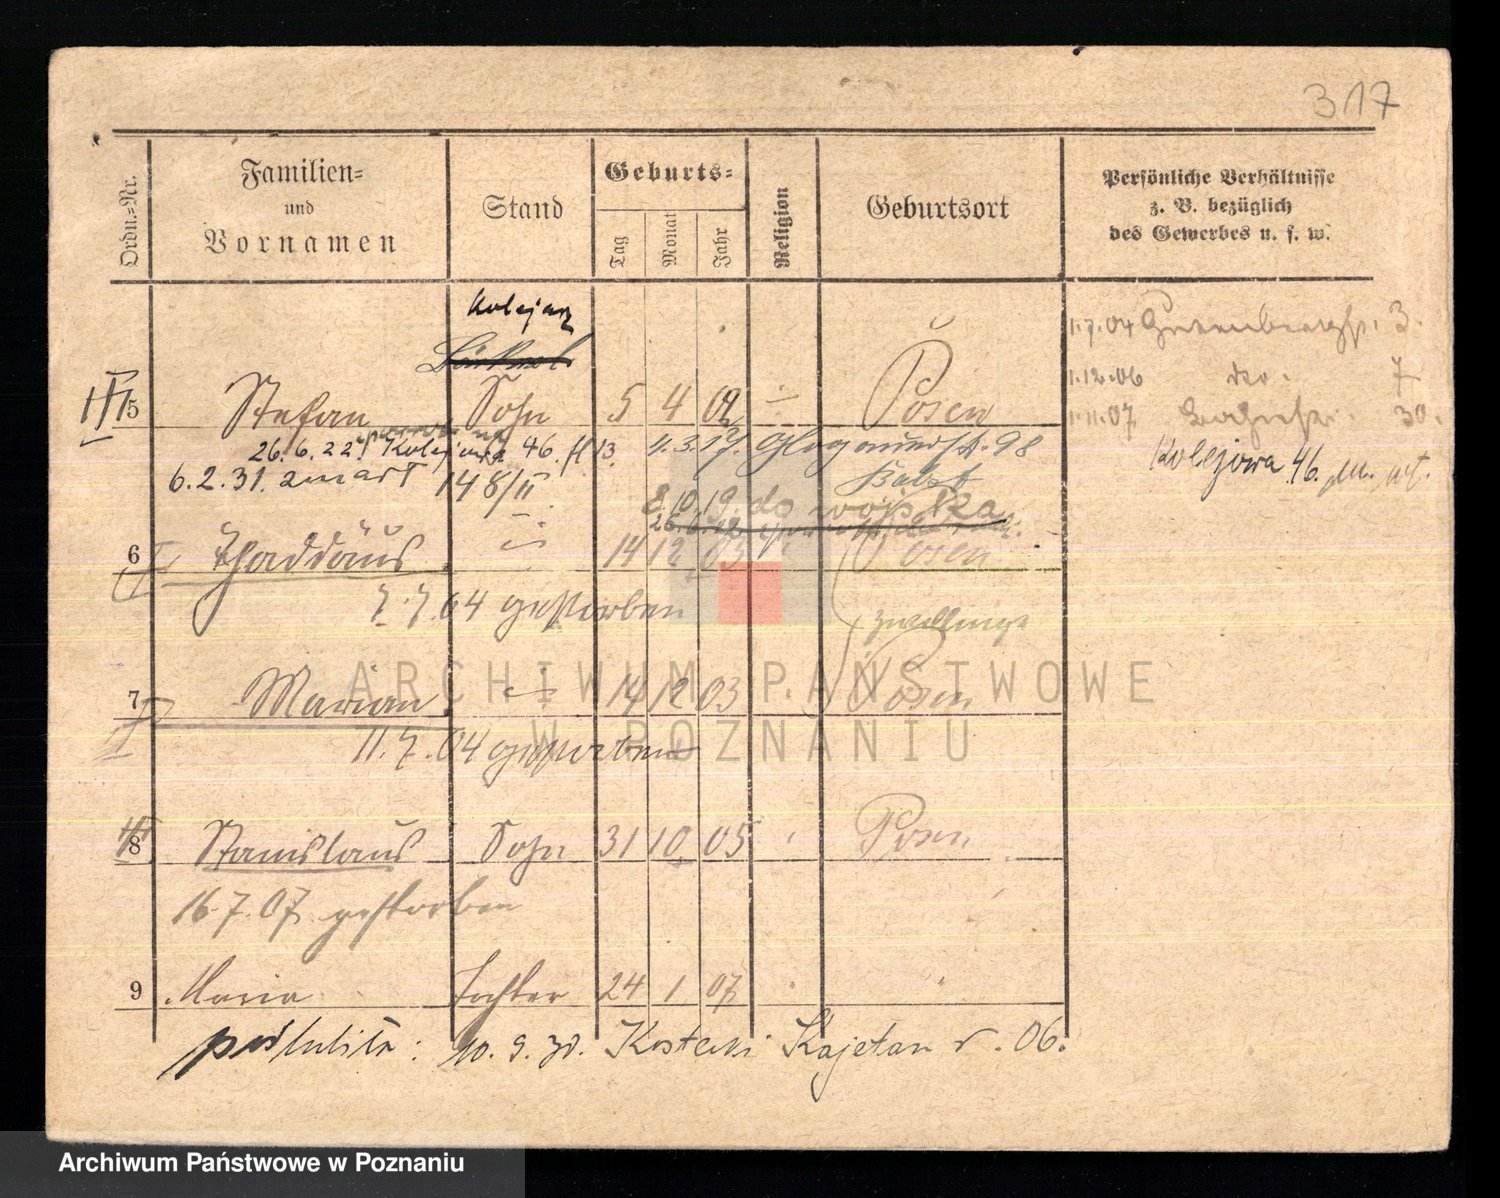 317
Ordn.-Nr.
Familien-
und
Vornamen
Stand
Geburts-
Tag
Monat
Jahr
Religion
Geburtsort
Persönliche Verhältnisse
z. B. bezüglich
des Gewerbes u. s. w.
Kolejarz
1.7.04 3.
1.12.06 7
5 Stefan Sohn 5 4 02 Posen
1.11.07 30.
26.6.22 Kolejowa 46. 13. 4.3.17. Glogauerstr. 98
Kolejowa 46.
6.2.31. zmarł 148/II
8.10.19. do wojska
6 Thaddäus 14 12 03 Posen
7.7.04 gestorben
Zwillinge
7 Marian 14 12 03 Posen
11.7.04 gestorben
8 Stanislaus Sohn 31 10 05 Posen
16.7.07 gestorben
9 Maria Tochter 24 1 07 "
poślubiła: 10.9.30. Kostecki Kajetan r. 06.
ARCHIWUM PAŃSTWOWE
W POZNANIU
Archiwum Państwowe w Poznaniu